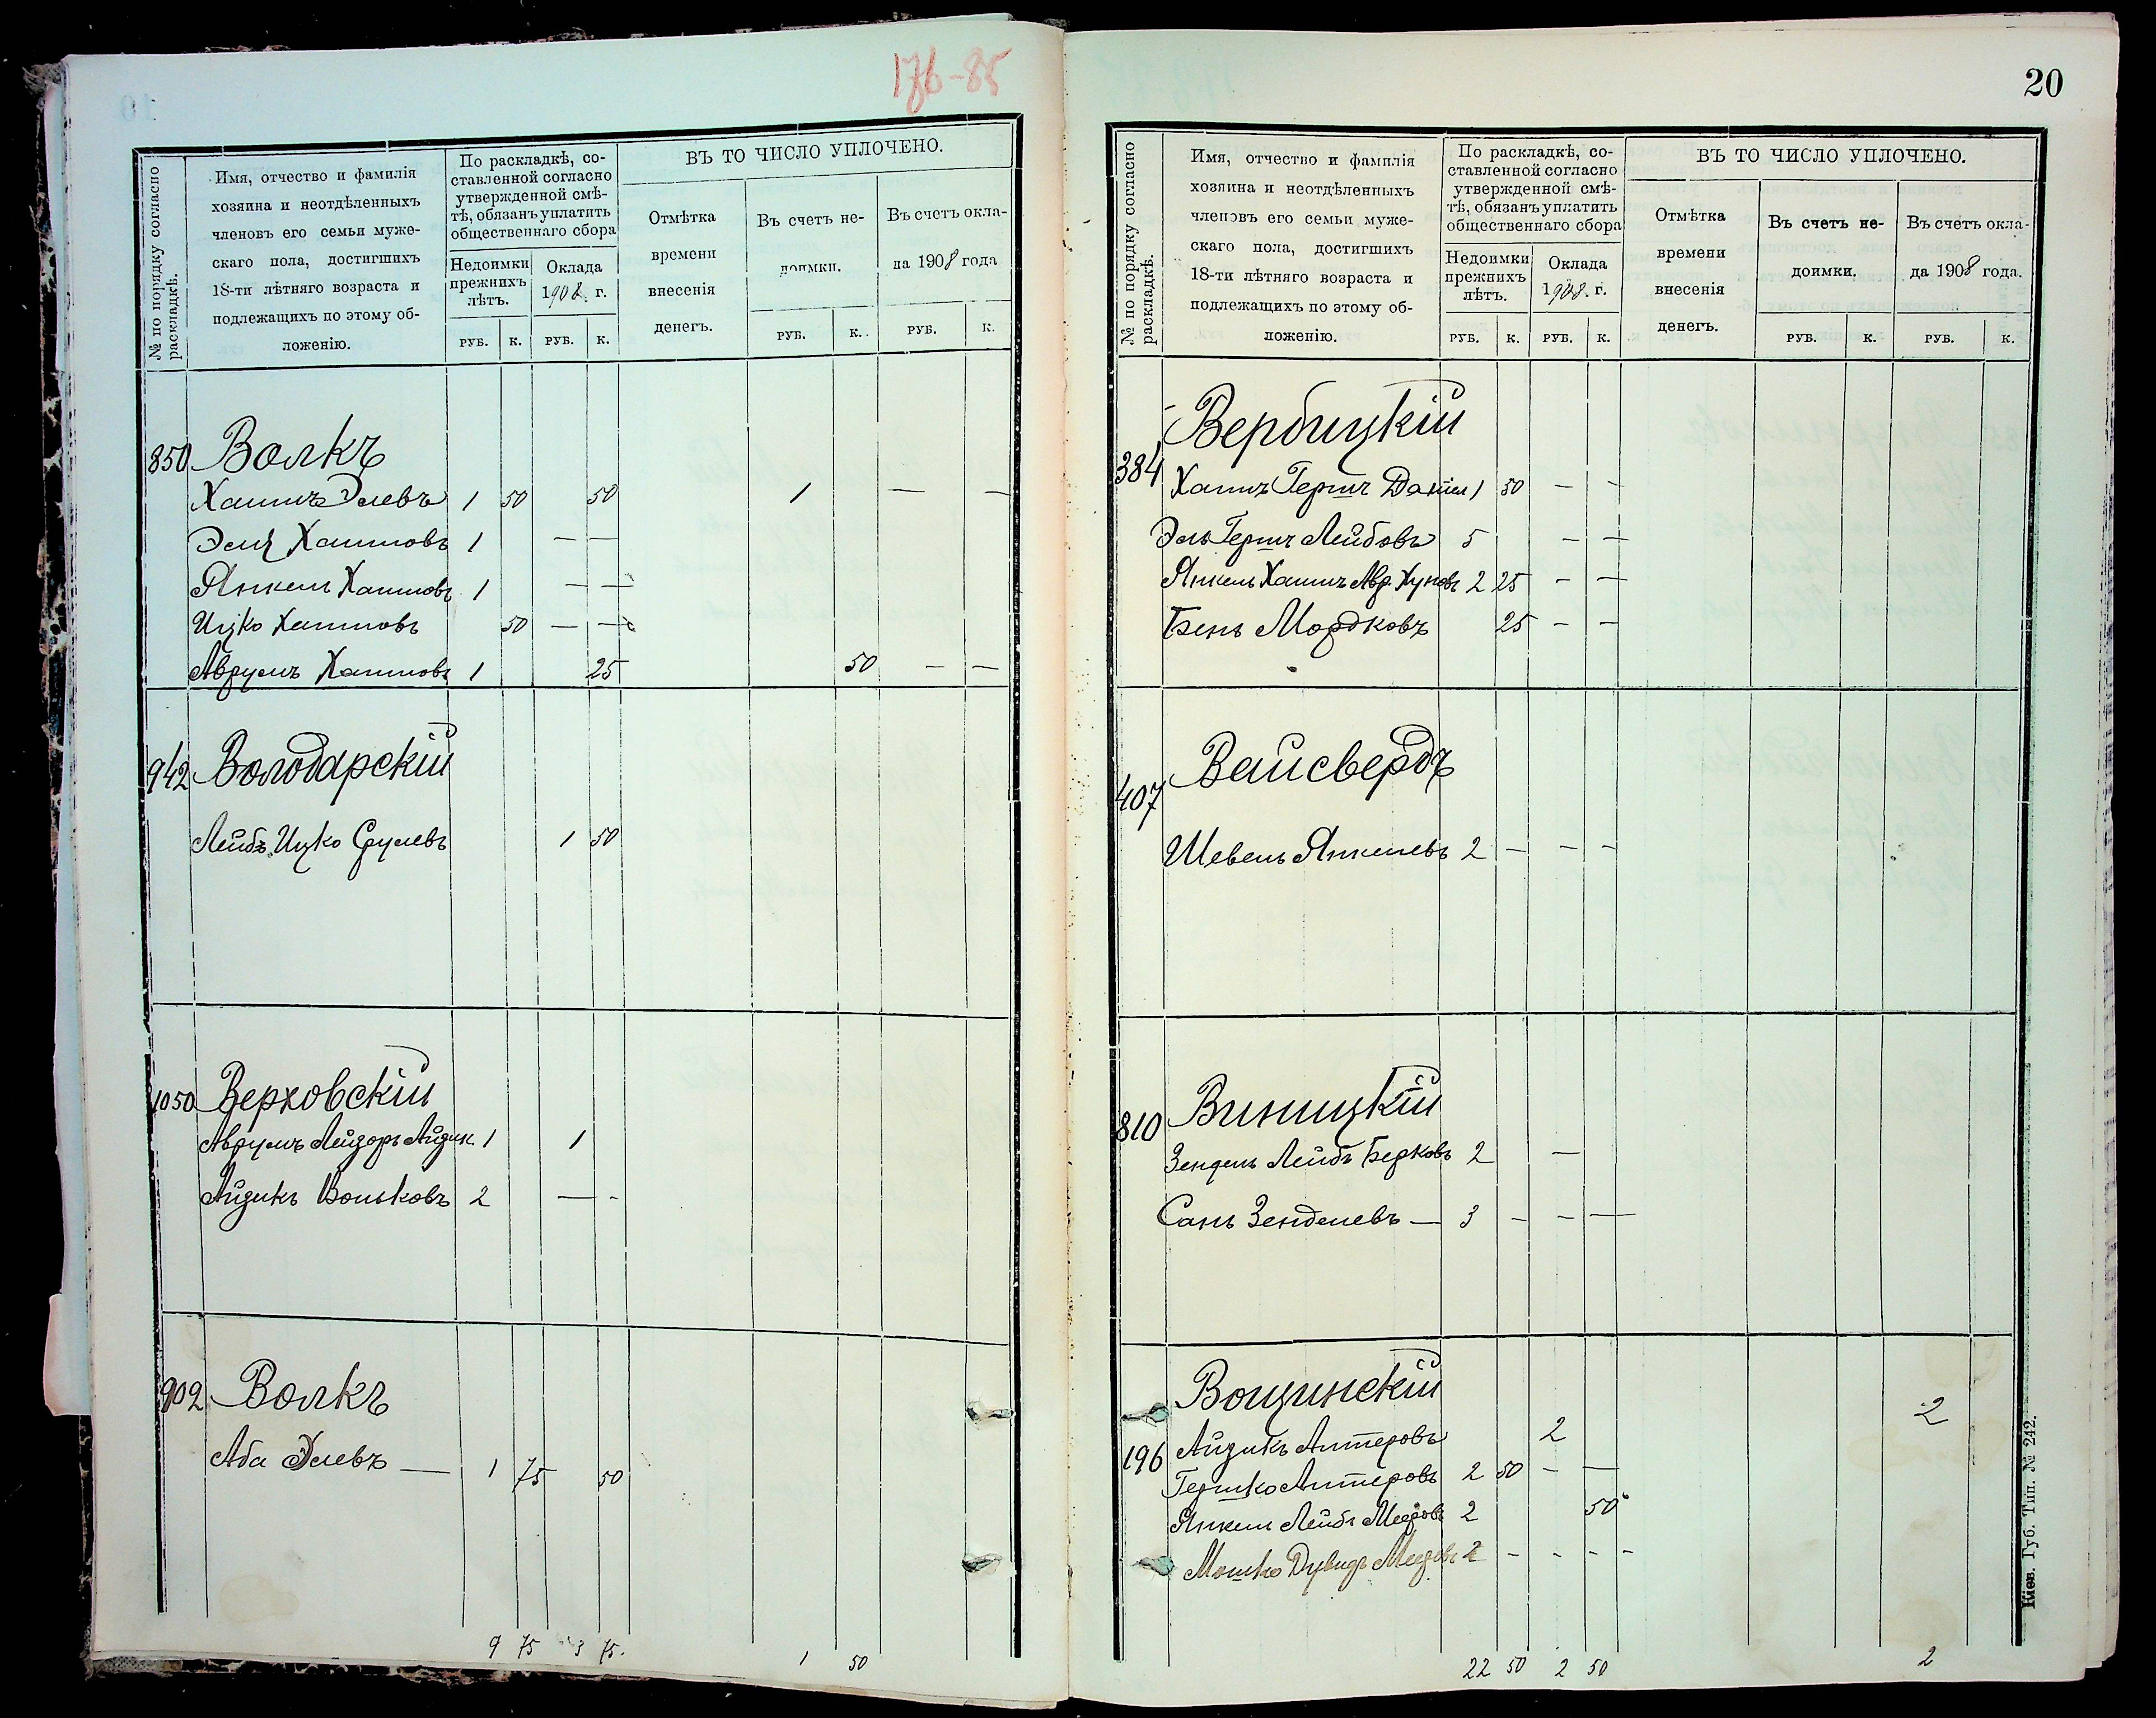 176-85
№ по порядку согласно раскладкѣ.
Имя, отчество и фамилія
хозяина и неотдѣленныхъ
членовъ его семьи муже-
скаго пола, достигшихъ
18-ти лѣтняго возраста и
подлежащихъ по этому об-
ложенію.
По раскладкѣ, со-
ставленной согласно
утвержденной смѣ-
тѣ, обязанъ уплатить
общественнаго сбора
Недоимки
прежнихъ
лѣтъ.
Оклада
1908. г.
РУБ. К. РУБ. К.
ВЪ ТО ЧИСЛО УПЛОЧЕНО.
Отмѣтка
времени
внесенія
денегъ.
Въ счетъ не-
доимки.
РУБ. К.
Въ счетъ окла-
да 1908 года
РУБ. К.
850 Волкъ
Хаимъ Элевъ 1 50 50 1 — —
Эля Хаимовъ 1 — —
Янкель Хаимовъ 1 — —
Ицко Хаимовъ 50 — —
Аврумъ Хаимовъ 1 25 50 — —
942 Володарскій
Лейбъ Ицко Срулевъ 1 50
1050 Верховскій
Аврумъ Лейзоръ Айзик. 1 1
Айзикъ Вольковъ 2 — -
902 Волкъ
Аба Элевъ — 1 75 50
9 75 3 75. 1 50
20
№ по порядку согласно раскладкѣ.
Имя, отчество и фамилія
хозяина и неотдѣленныхъ
членовъ его семьи муже-
скаго пола, достигшихъ
18-ти лѣтняго возраста и
подлежащихъ по этому об-
ложенію.
По раскладкѣ, со-
ставленной согласно
утвержденной смѣ-
тѣ, обязанъ уплатить
общественнаго сбора
Недоимки
прежнихъ
лѣтъ.
Оклада
1908. г.
РУБ. К. РУБ. К.
ВЪ ТО ЧИСЛО УПЛОЧЕНО.
Отмѣтка
времени
внесенія
денегъ.
Въ счетъ не-
доимки.
РУБ. К.
Въ счетъ окла-
да 1908 года.
РУБ. К.
384 Вербицкій
Хаимъ Гершъ Даніел 1 50 — -
Эль Гершъ Лейбовъ 5 — —
Янкель Хаимъ Авр. 2 25 - —
Бень Мордковъ 25 - —
407 Вайсвердъ
Шевель Янкелевъ 2 — - -
810 Виницкій
Зендель Лейбъ Берковъ 2 —
Сань Зенделевъ — 3 - - —
196 Вощинскій
Айзикъ Алтеровъ 2 2
Гершко Алтеровъ 2 50 - —
Янкель Лейбъ Мееровъ 2 50
Мошко Дувидъ Мееровъ 2 - - - -
22 50 2 50 2
Кіев. Губ. Тип. № 242.